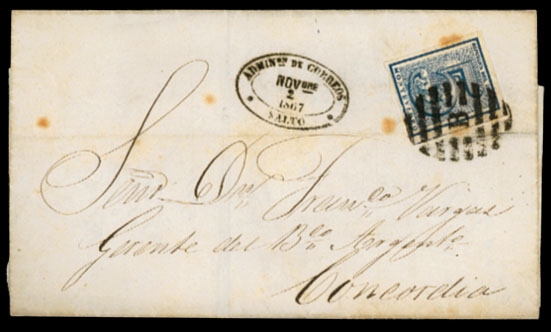 ADMINon DE CORREOS
NOVBRE
2
1867
SALTO
Señor Dn. Franco. Vargas
Gerente del Bco. Argento.
Concordia